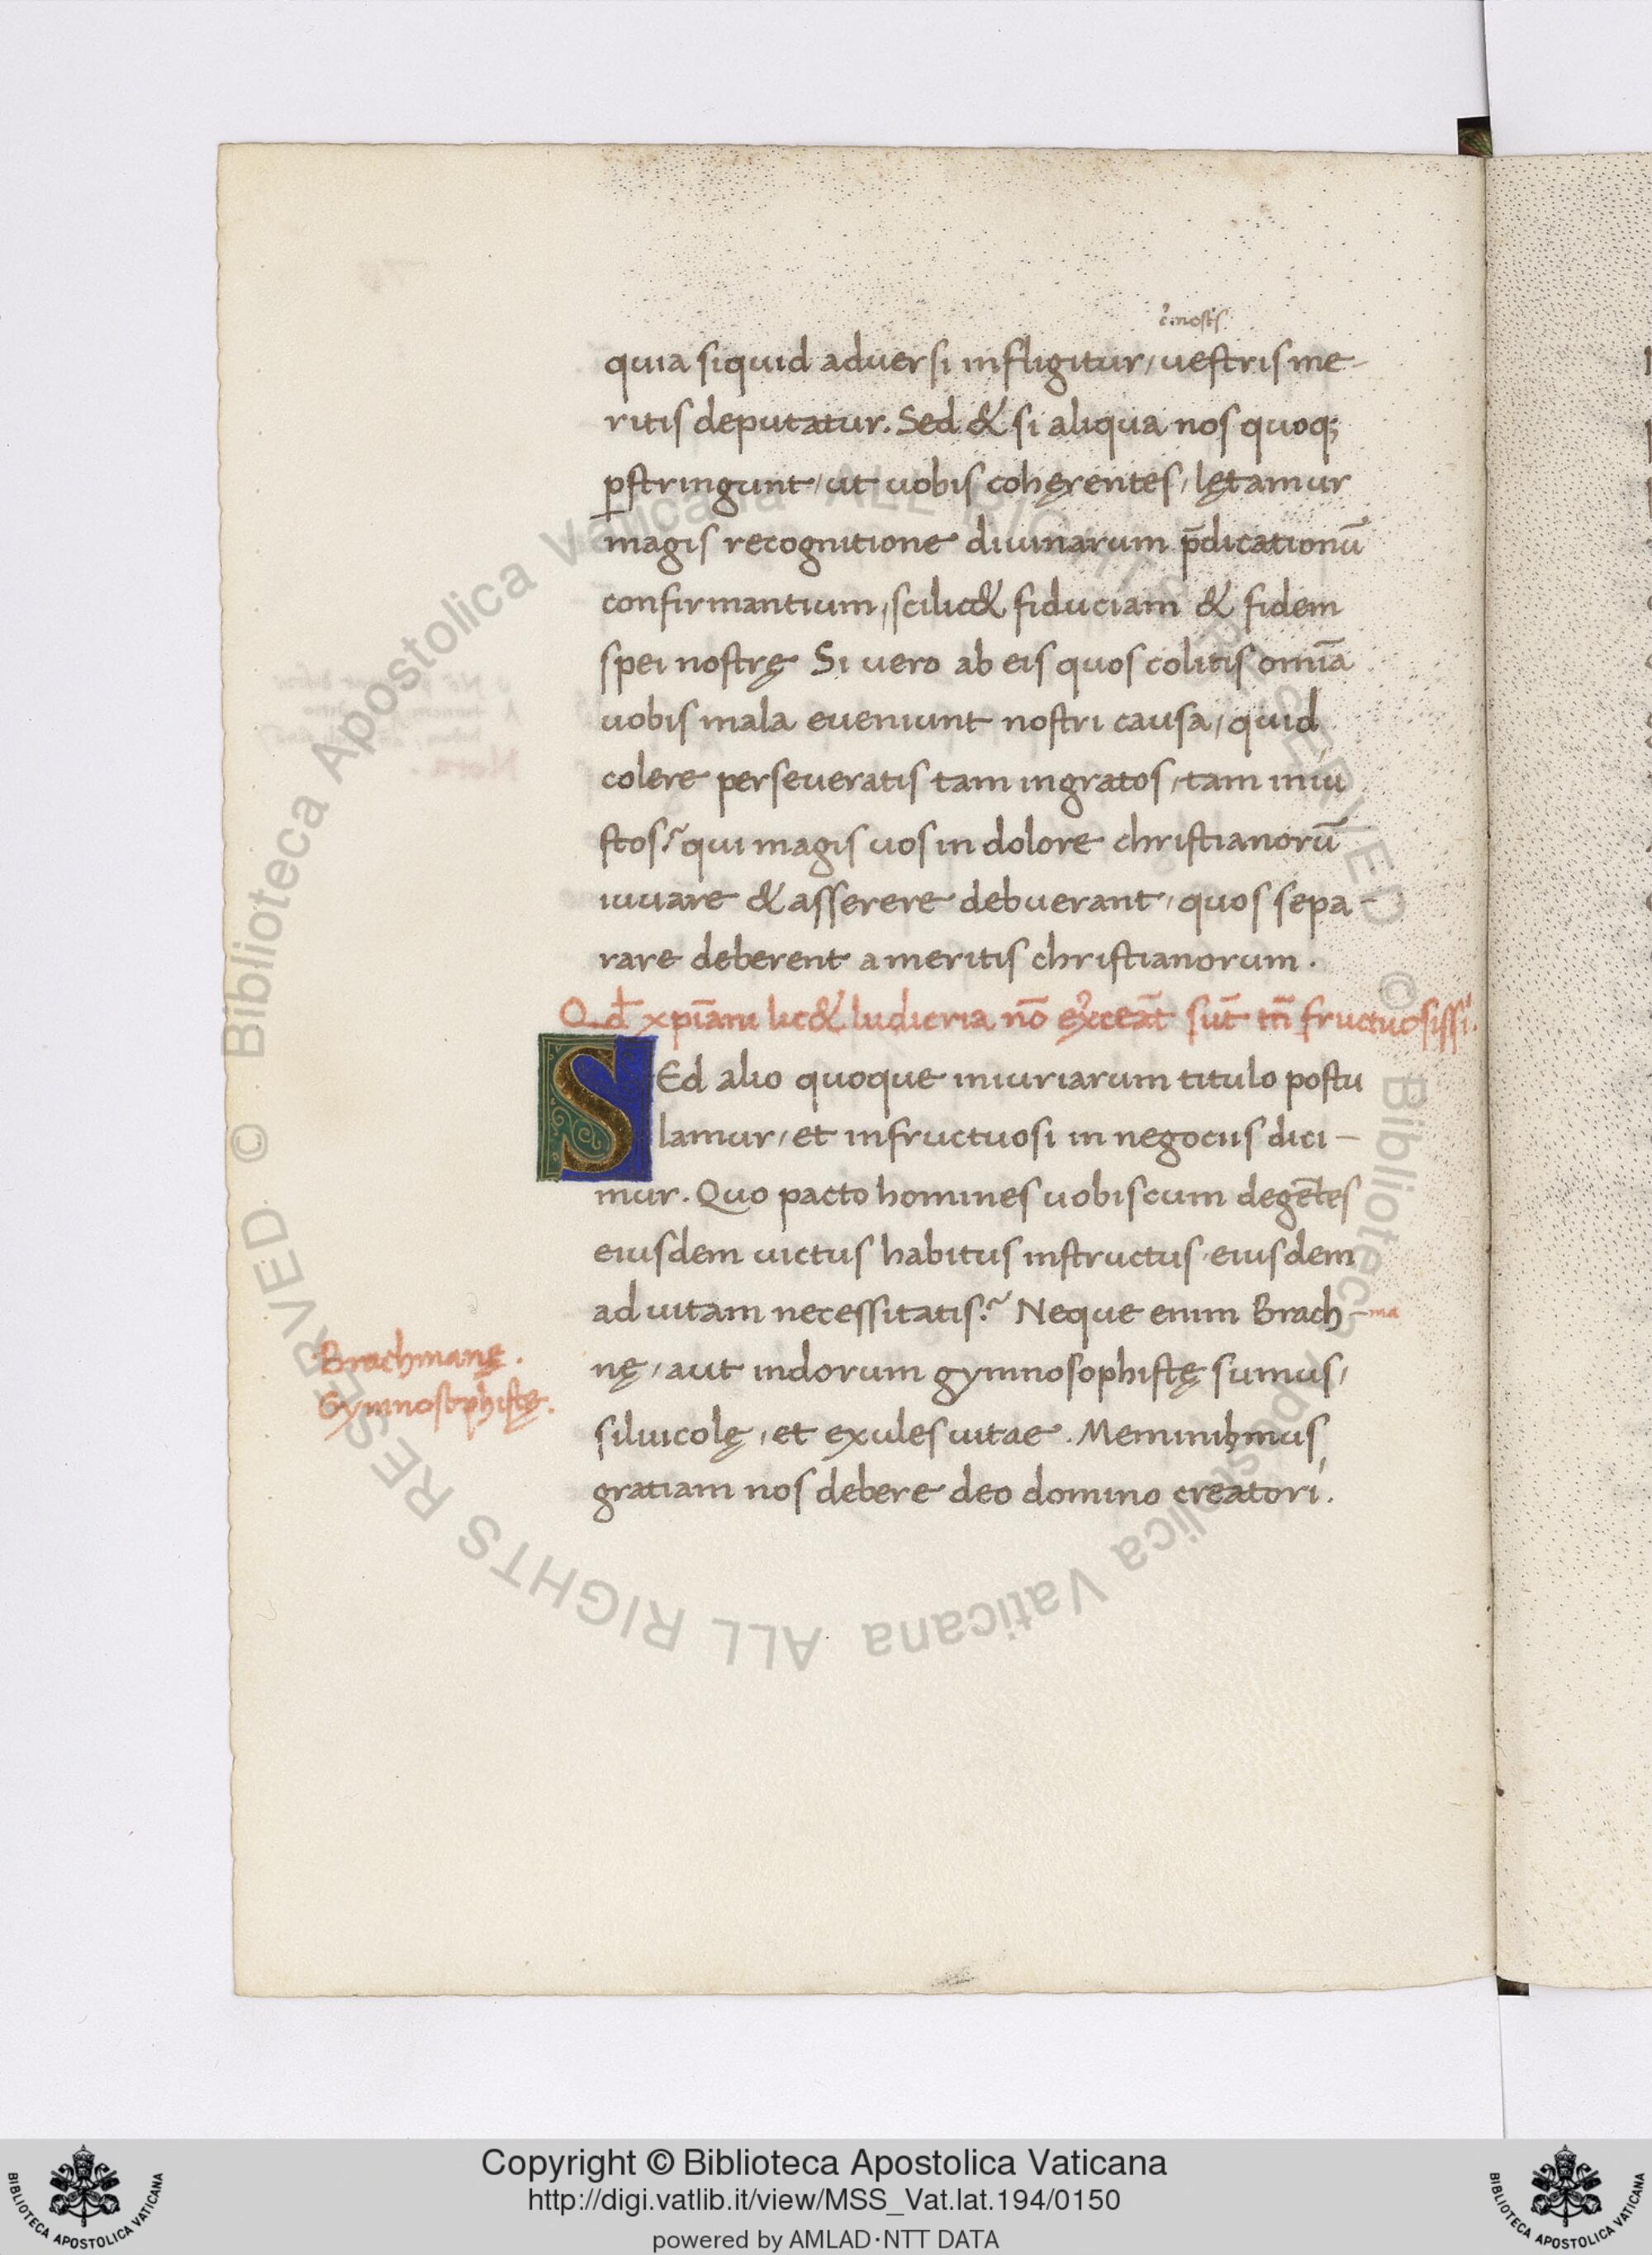 quia siquid adversi infligitur, uestris me-
ritis deputatur. Sed & si aliqua nos quoq;
ꝑstringunt, ut uobis cohęrentes, lętamur
magis recognitione diuinarum p̄dicationū
confirmantium, scilic& fiduciam & fidem
spei nostrę Si vero ab eis quos colitis omīa
uobis mala eveniunt nostri causa, quid
colere perseveratis tam ingratos, tam iniu
stos? qui magis vos in dolore christianorū
iuvare & asserere debuerant, quos sepa-
rare deberent a meritis christianorum.
Qd̄ xp̄iani lic& ludicria nō exerceāt sūt tn̄ fructuosissi.
SEd alio quoque iniuriarum titulo postu
lamur, et infructuosi in negociis dici-
mur. Quo pacto homines vobiscum degētes
eiusdem victus habitus instructus eiusdem
ad vitam necessitatis? Neque enim Brach-ma
nę, aut indorum gymnosophistę sumus,
siluicolę, et exules vitae. Meminimus
gratiam nos debere deo domino creatori.
Brachmanę.
Gymnosophistę.
© Biblioteca Apostolica Vaticana ALL RIGHTS RESERVED
© Biblioteca Apostolica Vaticana ALL RIGHTS RESERVED
Copyright © Biblioteca Apostolica Vaticana
http://digi.vatlib.it/view/MSS_Vat.lat.194/0150
powered by AMLAD·NTT DATA
BIBLIOTECA APOSTOLICA VATICANA
BIBLIOTECA APOSTOLICA VATICANA